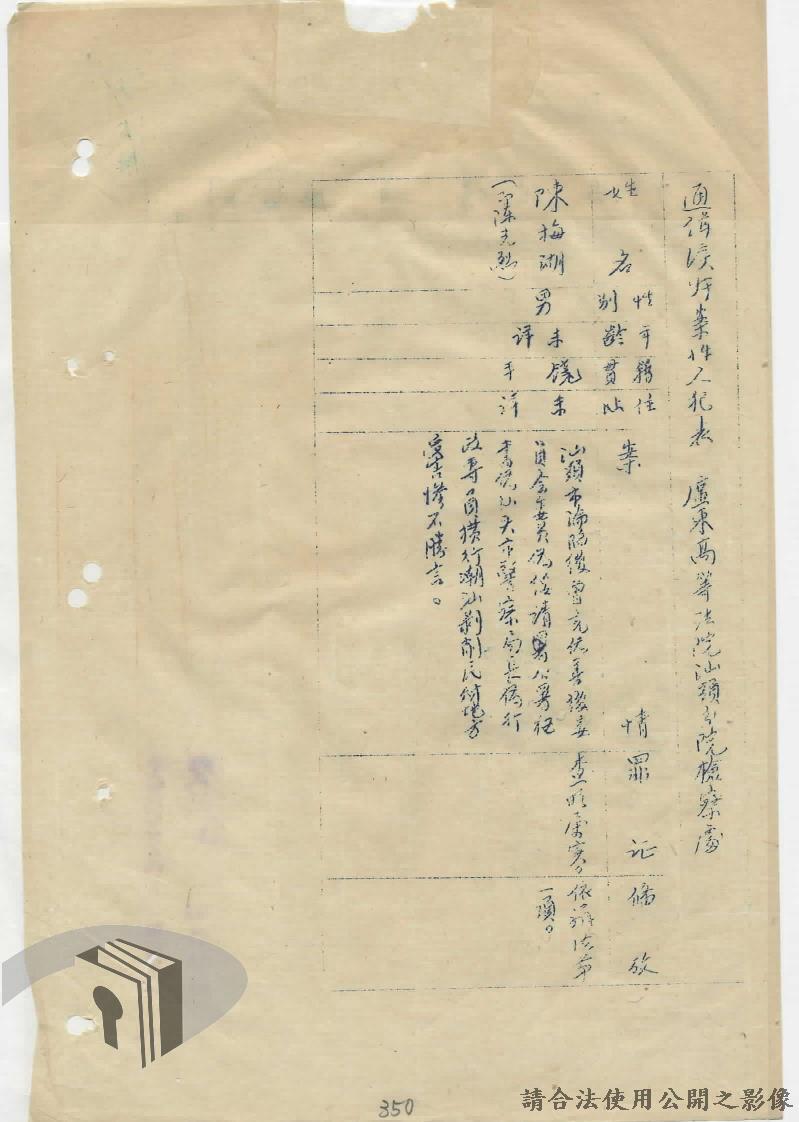 通緝漢奸案件人犯表 廣東高等法院汕頭分院檢察處
姓名
性別
年齡
籍貫
住址
案情
罪証
備攷
陳梅湖
(即陳光烈)
男
未詳
饒平
未詳
汕頭市淪陷後曾充偽善後委
員会
偽
公署
警察局長偽行
政專員橫行潮汕剝削民財地方
受害慘不勝言。
查明屬實。
依辦法第
一項。
350
請合法使用公開之影像